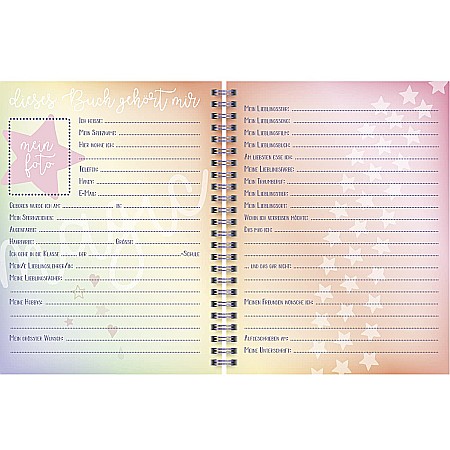 dieses Buch gehört mir
mein
foto
Ich heiße:
Mein Spitzname:
Hier wohne ich:
Telefon:
Handy:
E-Mail:
Geboren wurde ich am in:
Mein Sternzeichen:
Augenfarbe:
Haarfarbe: Größe:
Ich gehe in die Klasse der -Schule
Mein/e Lieblingslehrer/in:
Meine Lieblingsfächer:
Meine Hobbys:
Mein größter Wunsch:
Mein Lieblingsstar:
Mein Lieblingssong:
Mein Lieblingsfilm:
Mein Lieblingsbuch:
Am liebsten esse ich:
Meine Lieblingsfarbe:
Mein Traumberuf:
Mein Lieblingstier:
Mein Lieblingsort:
Wohin ich verreisen möchte:
Das mag ich:
... und das gar nicht:
Meinen Freunden wünsche ich:
Aufgeschrieben am:
Meine Unterschrift: